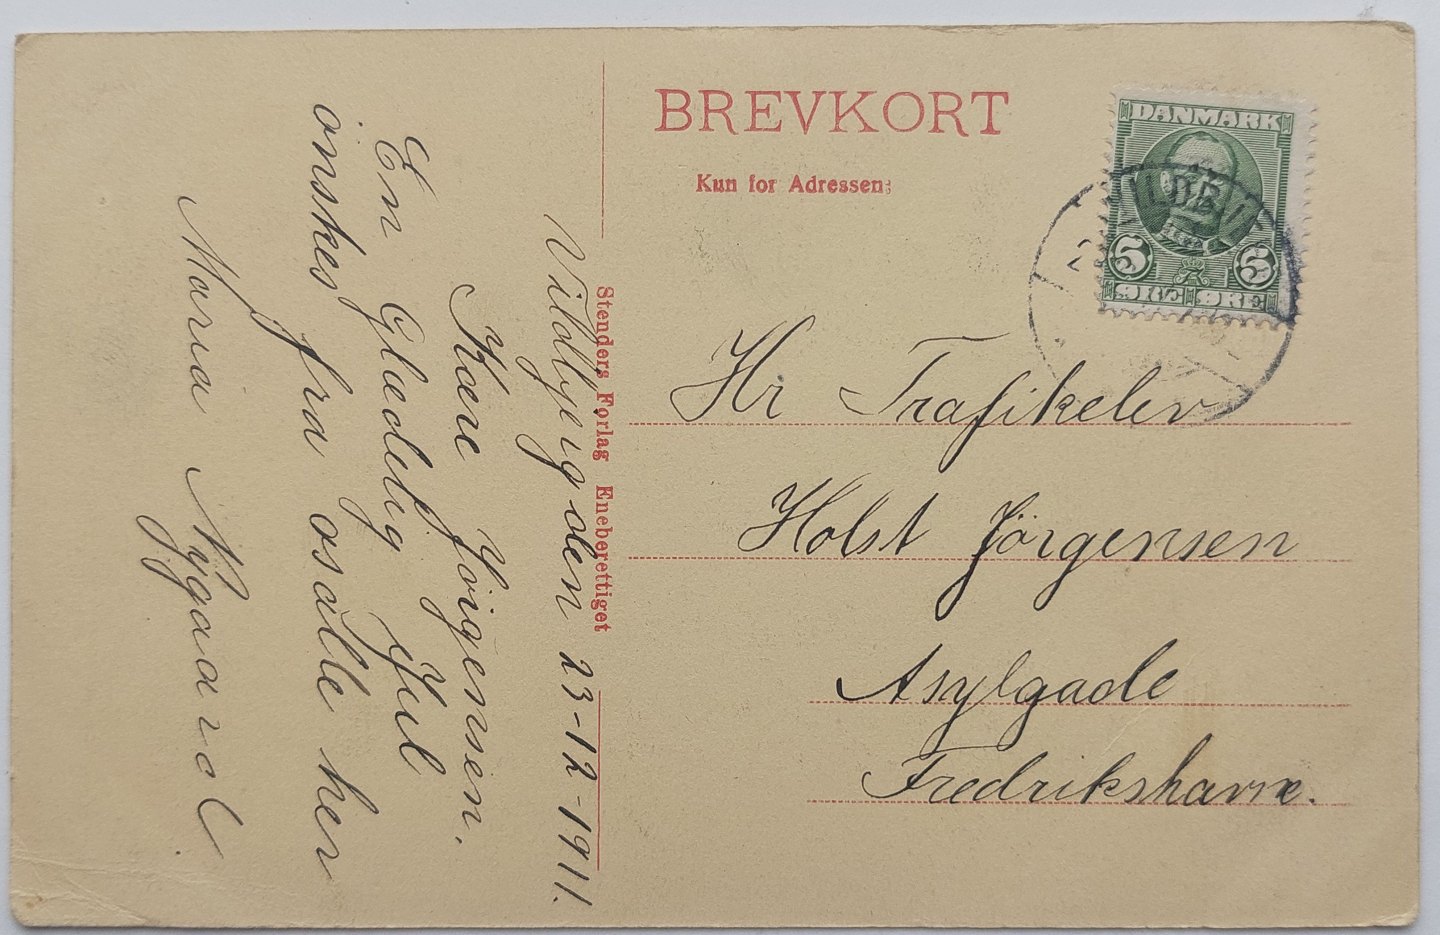 BREVKORT
Kun for Adressen:
DANMARK
5 5
ØRE ØRE
Hr Trafikelev
Holst Jörgensen
Asylgade
Fredrikshavn.
Stenders Forlag Eneberettiget
Vildbjerg den 23-12-1911.
Kære Jörgensen.
En Glædelig Jul
önskes fra os alle her
Maria Nygaard